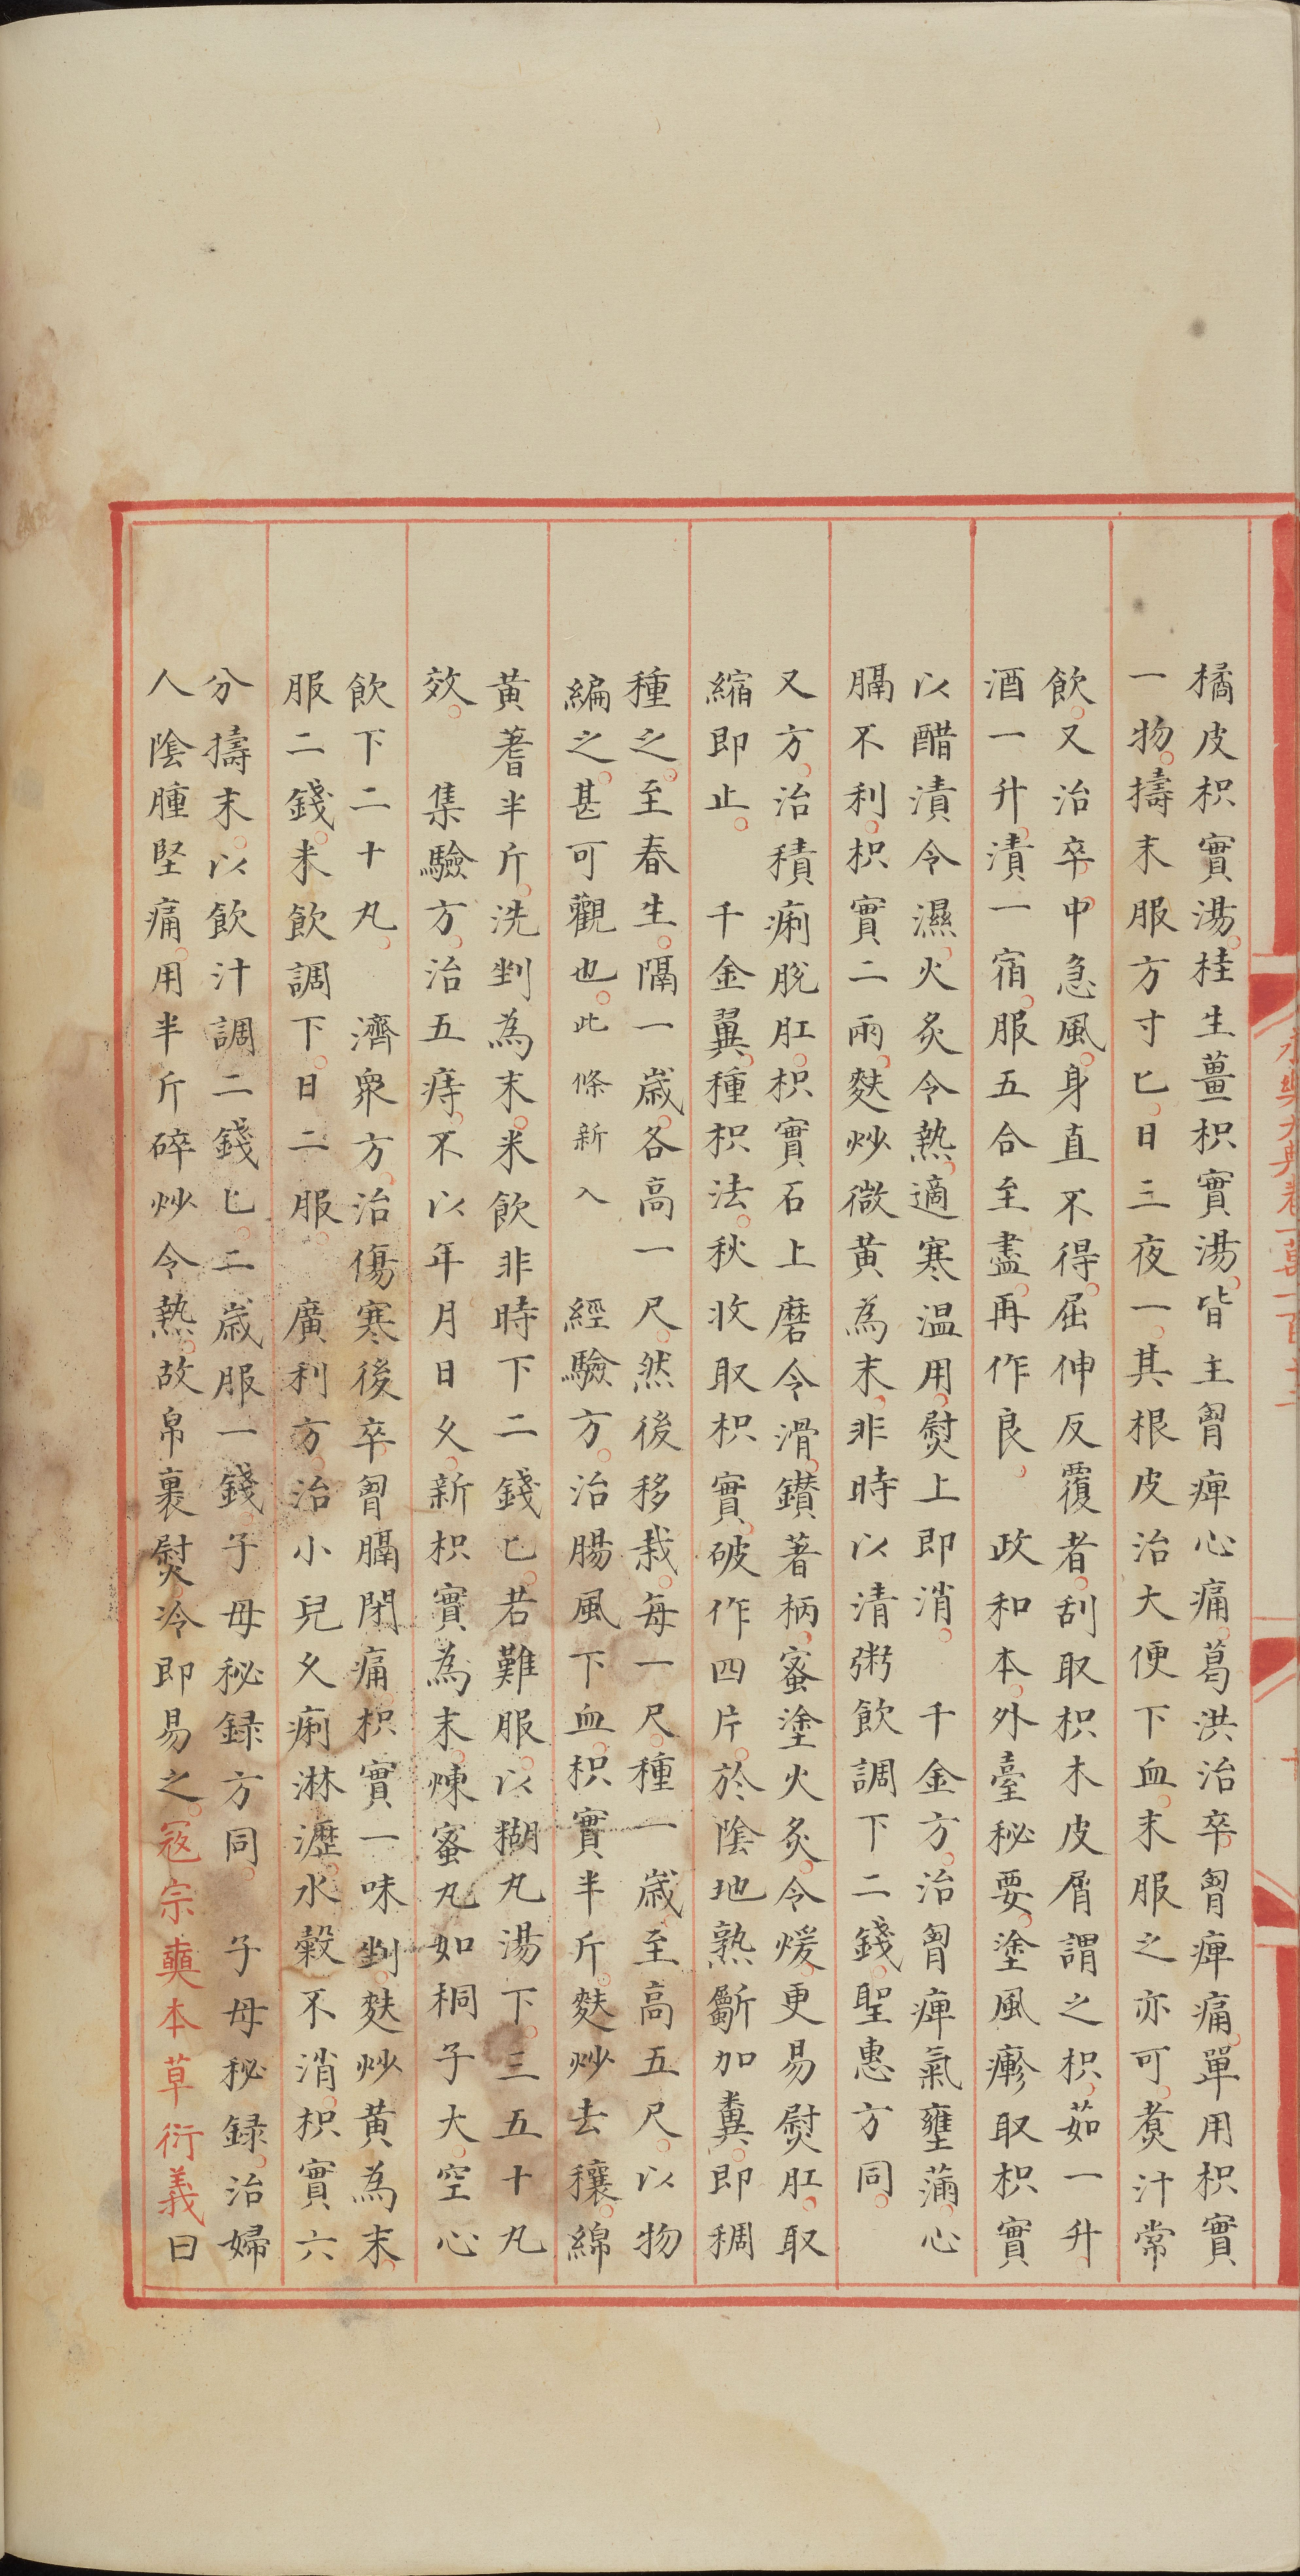 橘皮枳實湯桂生薑枳實湯皆主胷痺心痛葛洪治卒胷痺痛單用枳實
一物擣末服方寸匕日三夜一其根皮治大便下血末服之亦可煑汁常
飲又治卒中急風身直不得屈伸反覆者刮取枳木皮屑謂之枳茹一升
酒一升漬一宿服五合至盡再作良　政和本外臺秘要塗風瘮取枳實
以醋漬令濕火炙令熱適寒溫用熨上即消　千金方治胷痺氣壅滿心
膈不利枳實二兩麩炒微黃為末非時以清粥飲調下二錢聖惠方同
又方治積痢脫肛枳實石上磨令滑鑚著柄蜜塗火炙令煖更易熨肛取
縮即止　千金翼種枳法秋收取枳實破作四片於陰地熟斸加糞即稠
種之至春生隔一歲各高一尺然後移栽每一尺種一歲至高五尺以物
編之甚可觀也此條新入　經驗方治腸風下血枳實半斤麩炒去穰綿
黃蓍半斤洗剉為末米飲非時下二錢匕若難服以糊丸湯下三五十丸
效　集驗方治五痔不以年月日久新枳實為末煉蜜丸如桐子大空心
飲下二十丸　濟衆方治傷寒後卒胷膈閉痛枳實一味剉麩炒黃為末
服二錢米飲調下日二服　廣利方治小兒久痢淋瀝水穀不消枳實六
分擣末以飲汁調二錢匕二歲服一錢子母秘録方同　子母秘録治婦
人陰腫堅痛用半斤碎炒令熱故帛裹熨冷即易之寇宗奭本草衍義曰
永樂大典卷一萬一百十二